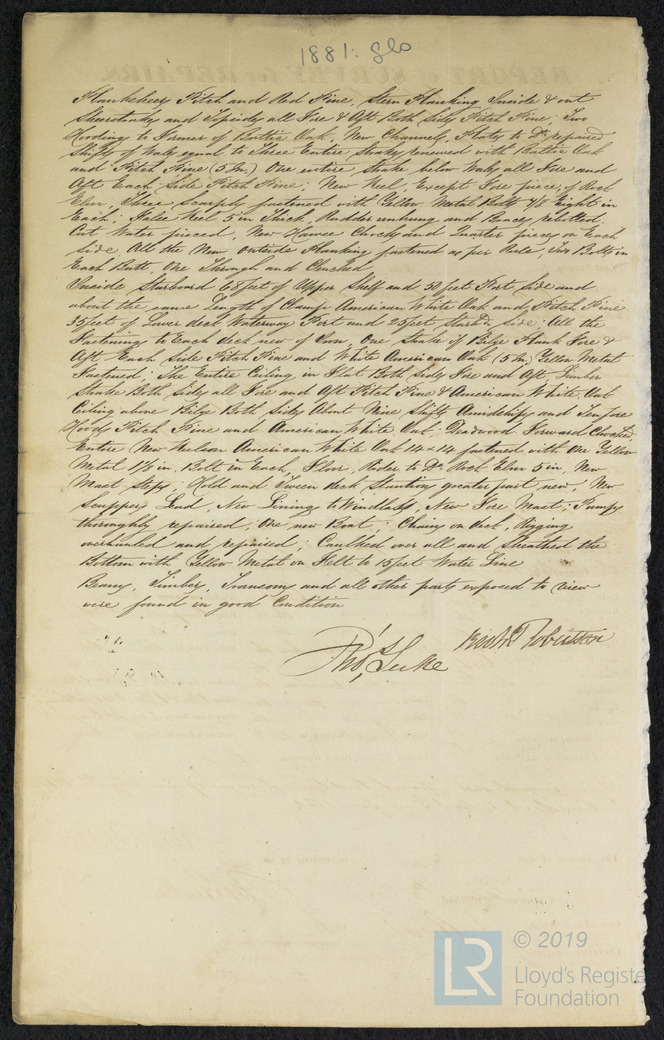 1881. Glo
Planksheer Pitch and Red Pine, Stern Planking Inside & out
Sheerstrakes and Topsides all Fore & Aft Both Sides Pitch Pine; Two
Hooding to Former of Baltic Oak, New Channels, Plates to Do repaired
Shifts of Wales equal to Three Entire Strakes renewed with Baltic Oak
and Pitch Pine (5 In.) One entire Strake below Wales all Fore and
Aft Each Side Pitch Pine; New Keel, Except Fore piece, of Rock
Elm, Three Scarphs fastened with Yellow Metal Bolts 7/8 Eight in
Each; False Keel 5 in Thick, Rudder unhung and Braces refitted,
Cut Water pieced, New Hawse Chocks and Quarter pieces on Each
Side All the New outside Planking fastened as per Rule, Two Bolts in
Each Butt, One Through and Clenched
Inside Starboard 68 feet of Upper Shelf and 50 feet Port Side and
about the same Length of Clamp American White Oak and Pitch Pine
35 feet of Lower deck Waterway Port and 25 feet Starbd Side; All the
Fastenings to Each deck new of Iron, One Strake of Bilge Plank Fore &
Aft Each Side Pitch Pine and White American Oak (5 In) Yellow Metal
Fastened; The Entire Ceiling in Flat Both Sides Fore and Aft Limber
Strake Both Sides all Fore and Aft Pitch Pine & American White Oak
Ceiling above Bilge Both Sides About Nine Shifts Amidships and Ten Fore
Hoods Pitch Pine and American White Oak; Deadwood Forward Chocked
Entire New Keelson American White Oak 14 x 14 fastened with One Yellow
Metal 1 1/8 in. Bolt in Each Floor, Rider to Do Rock Elm 5 in, New
Mast Steps; Hold and Tween deck Stantions greater part new; New
Scuppers Lead, New Lining to Windlass, New Fore Mast; Pumps
thoroughly repaired, One new Boat; Chains on deck, Rigging
overhauled and repaired; Caulked over all and Sheathed the
Bottom with Yellow Metal on Felt to 15 feet Water Line
Beams, Timbers, Transoms and all other parts exposed to view
were found in good Condition
Thos Luke
Robertson
LR
© 2019
Lloyd's Registe
Foundation